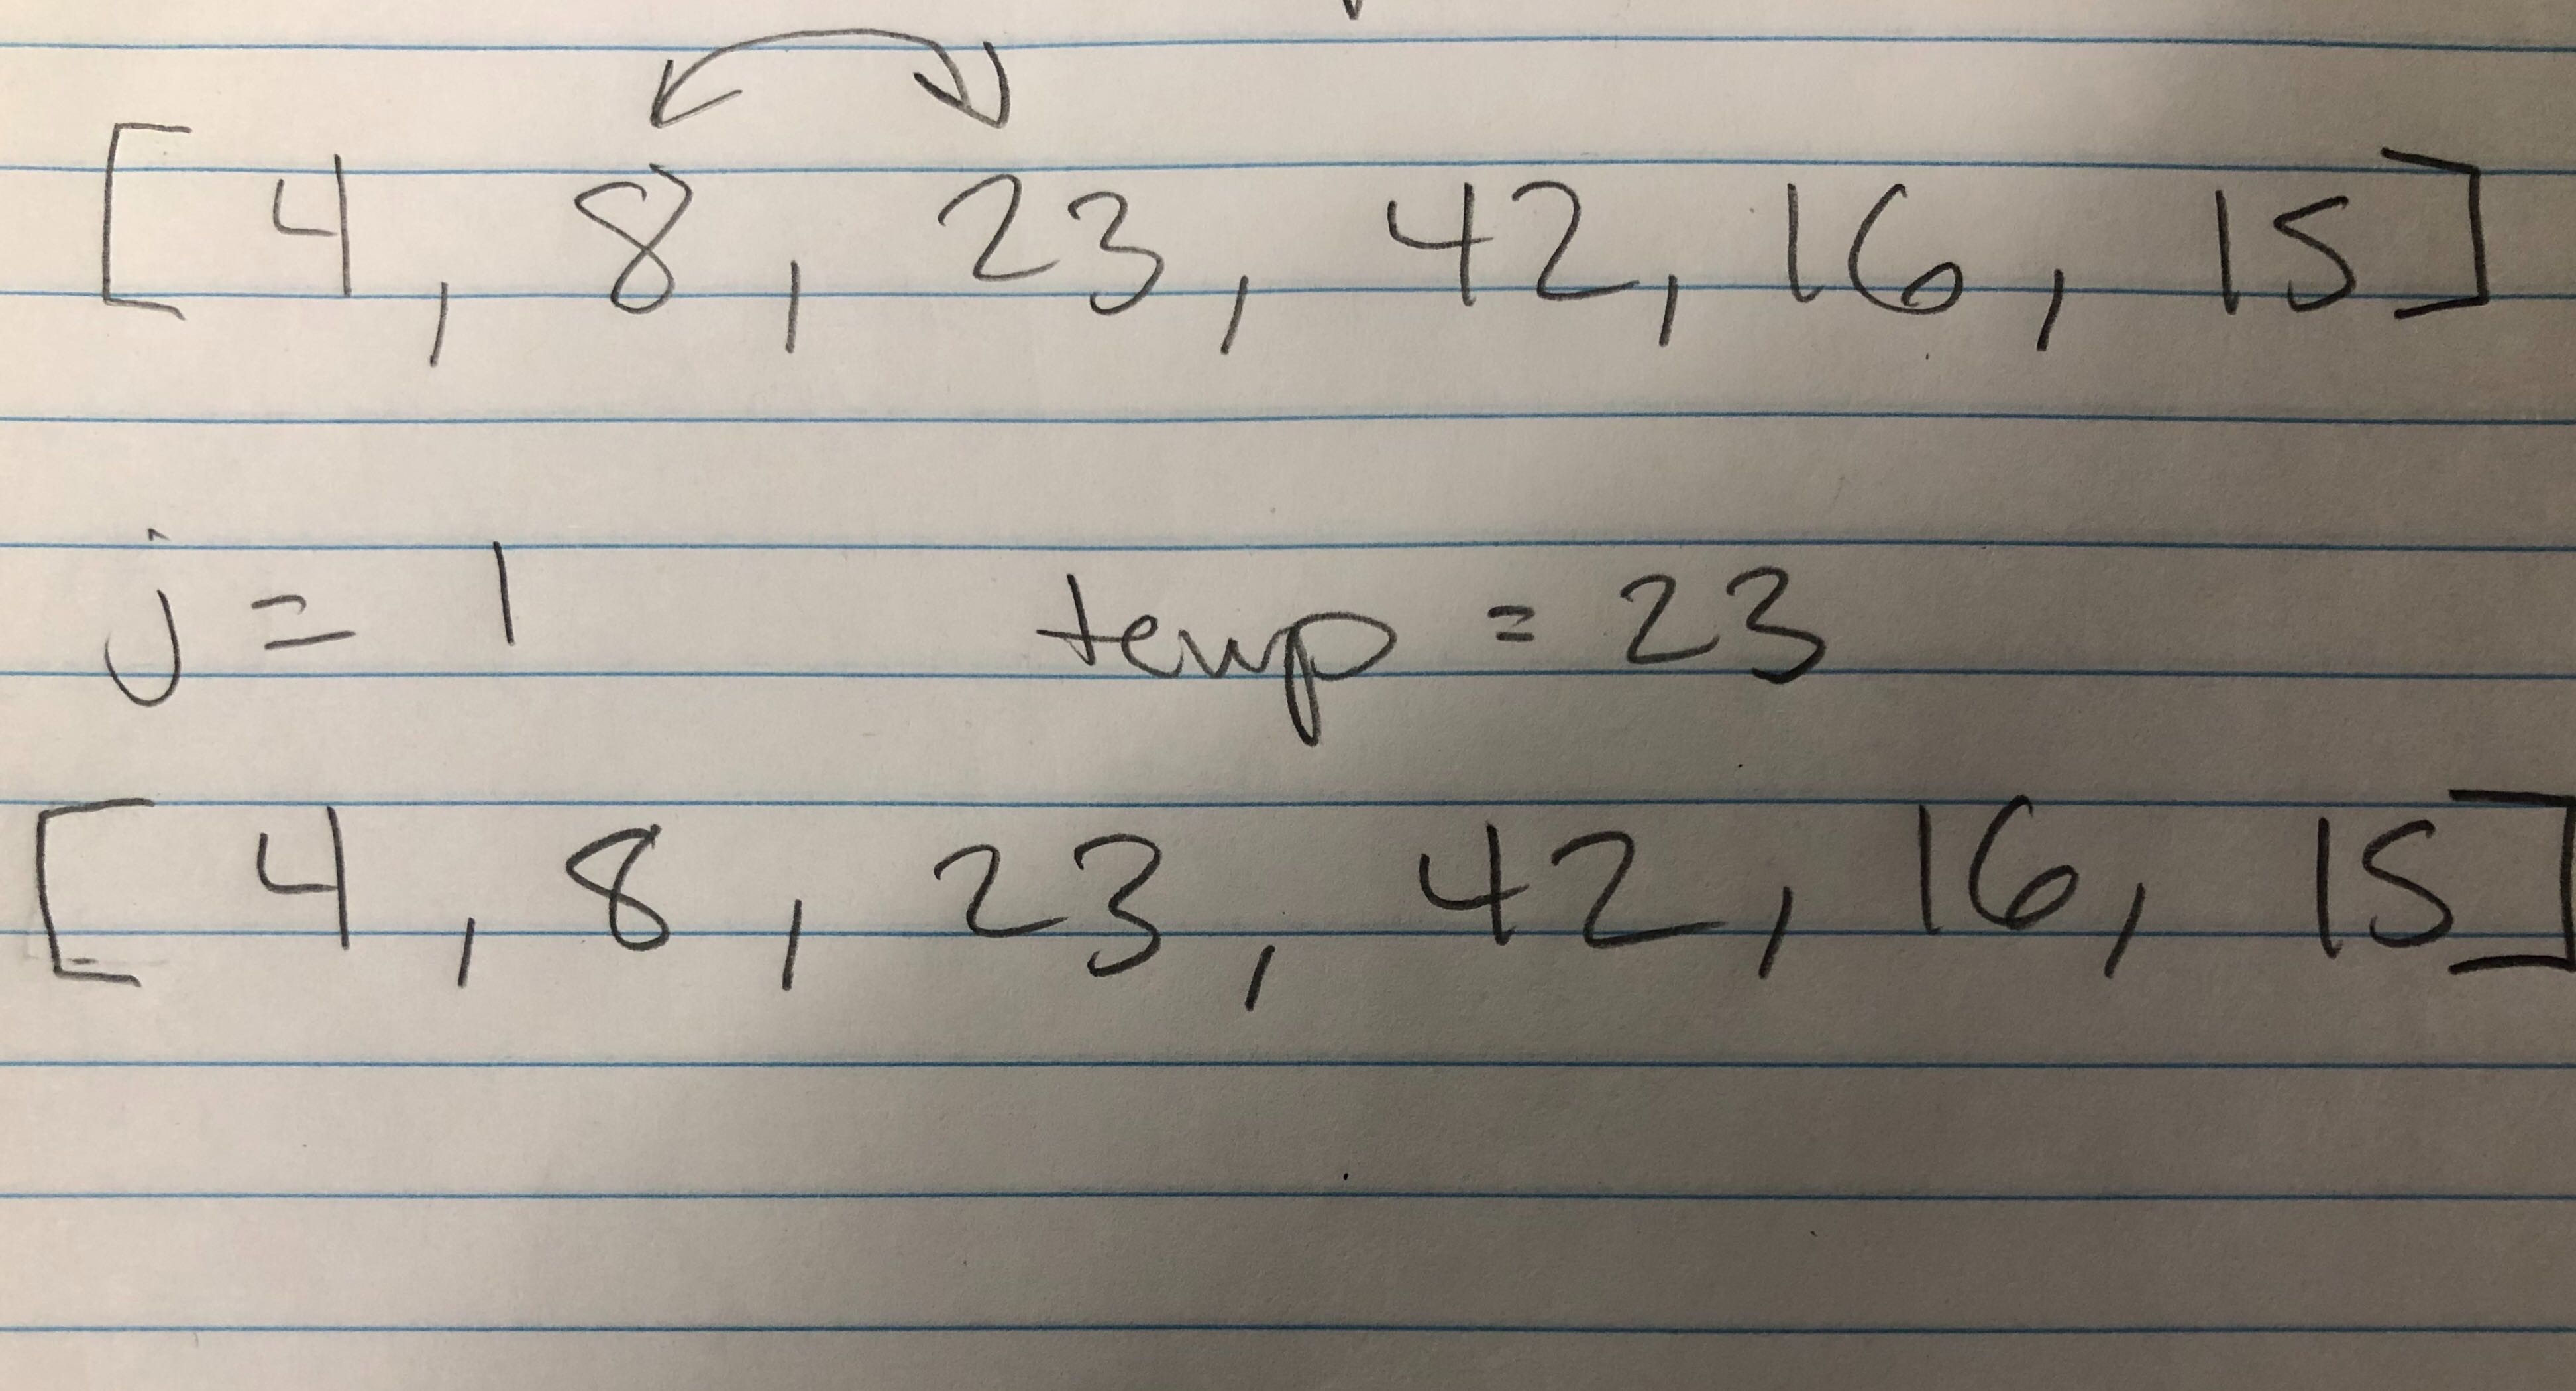 [ 4, 8, 23, 42, 16, 15]
j = 1 temp = 23
[ 4, 8, 23, 42, 16, 15]